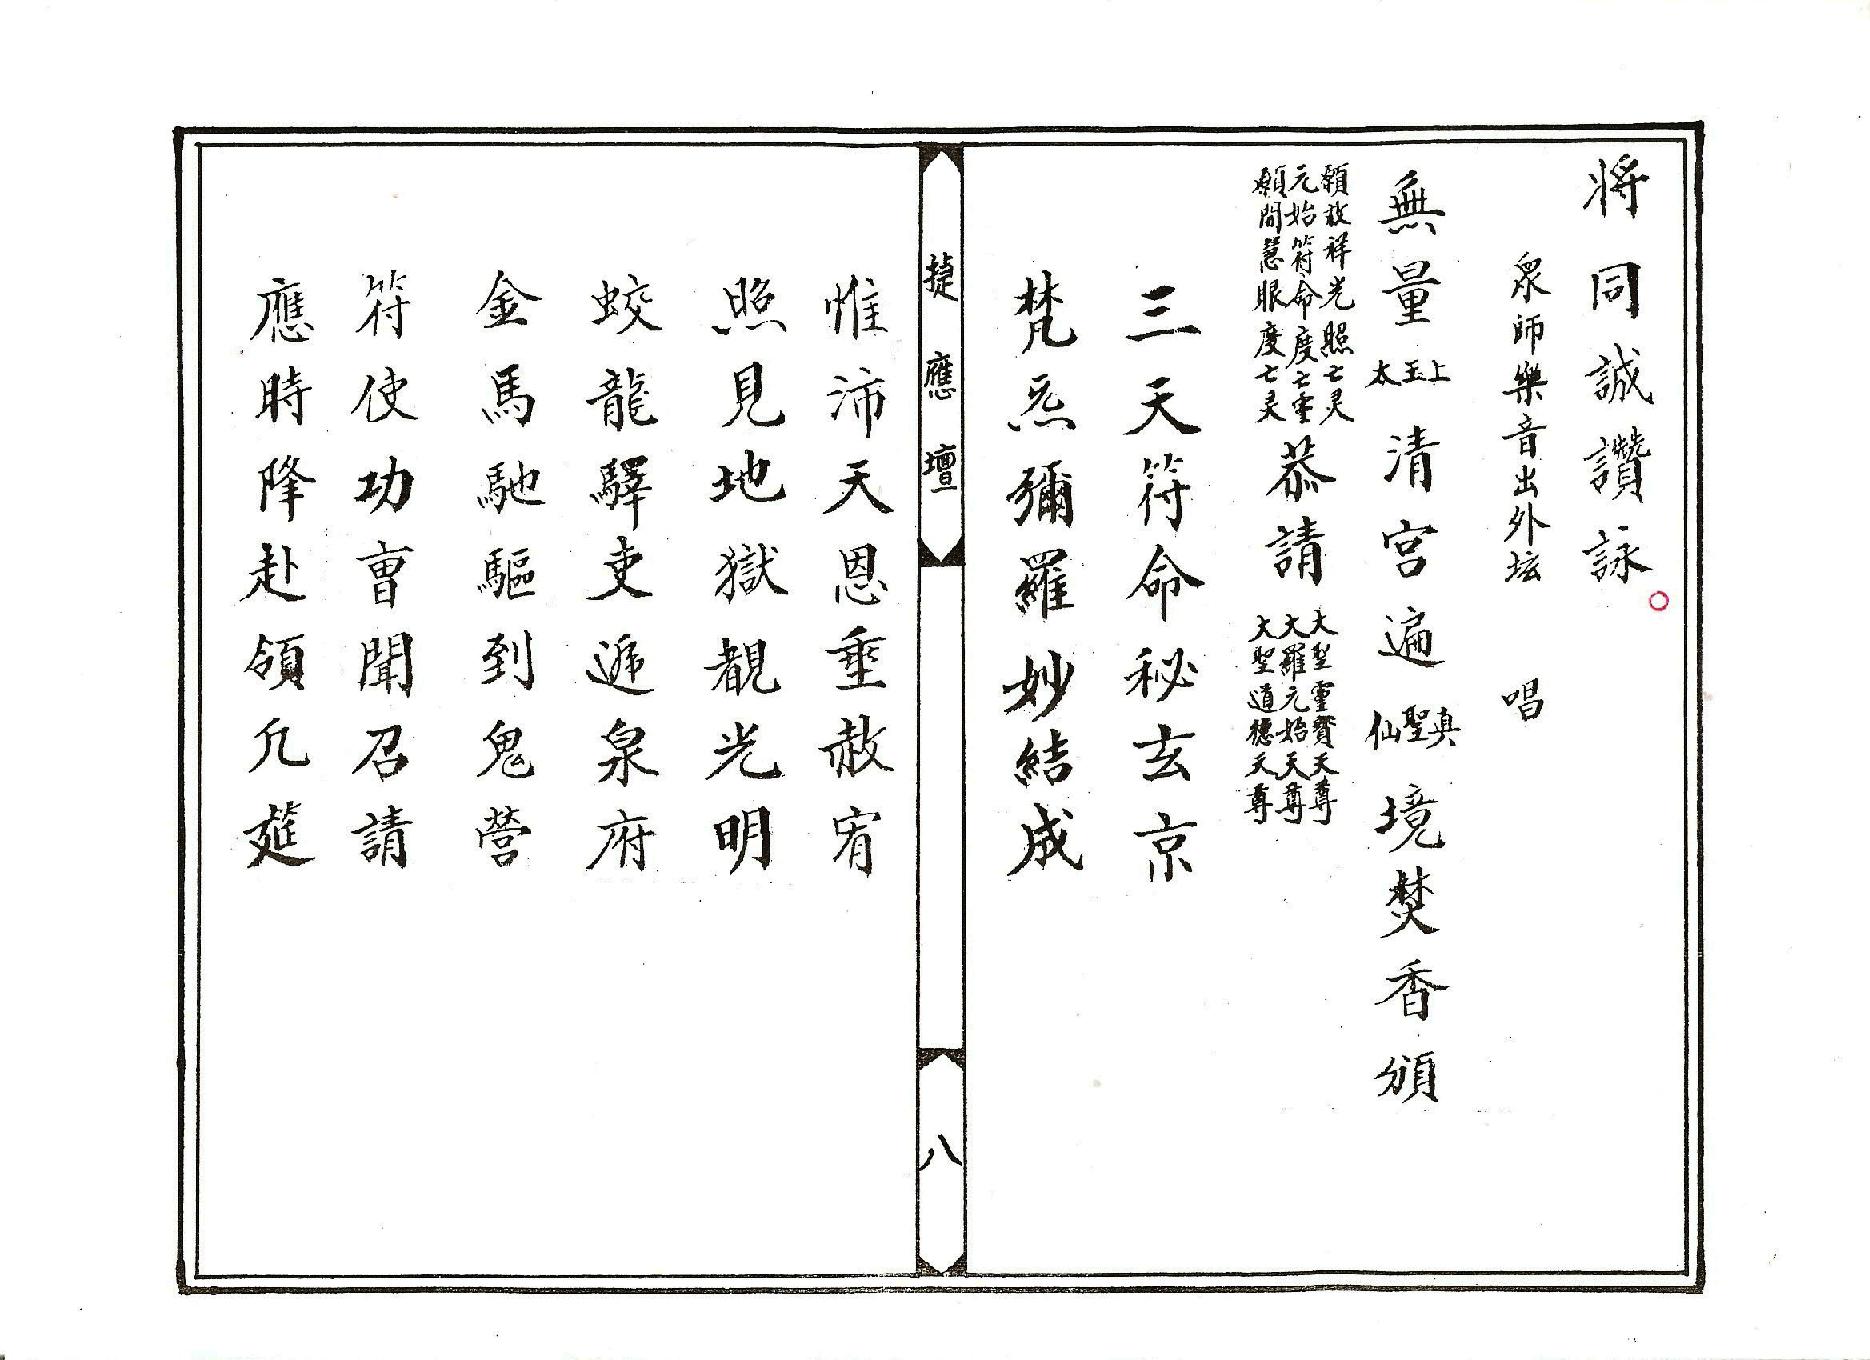 將同誠讚詠
衆師樂音出外坛 唱
無量上玉太清宮遍真聖仙境焚香頒
願放祥光照七灵
元始符命度七重
願開慧眼度七灵
恭請
大聖靈寶天尊
大羅元始天尊
大聖道德天尊
三天符命秘玄京
梵炁彌羅妙結成
捷應壇
八
惟沛天恩垂赦宥
照見地獄覩光明
蛟龍驛吏遞泉府
金馬馳驅到鬼營
符使功曹聞召請
應時降赴領凡筵